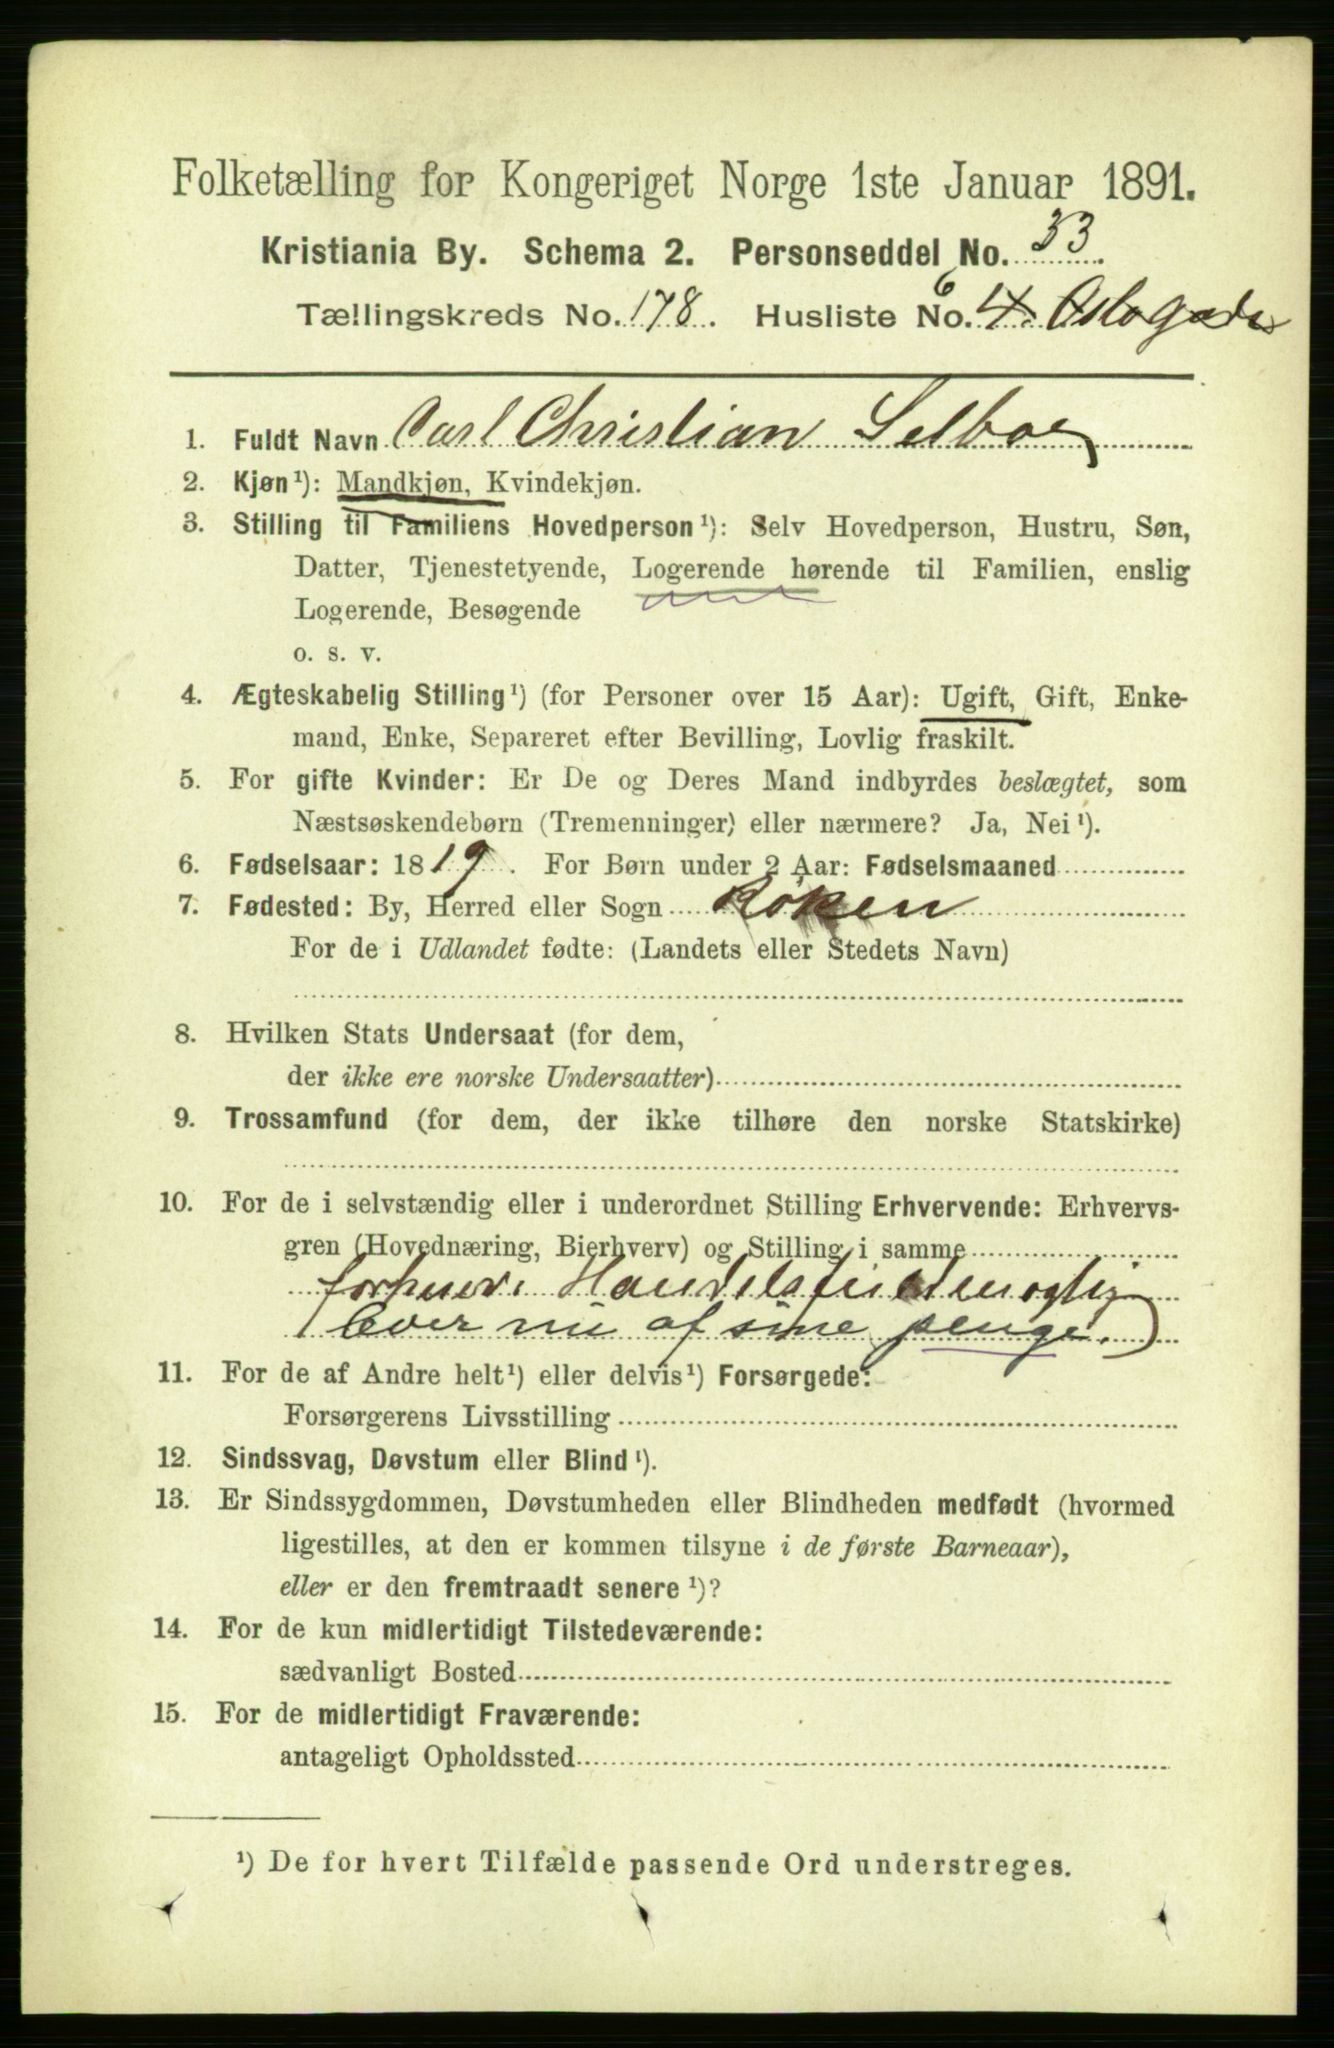 Folketælling for Kongeriget Norge 1ste Januar 1891.
Kristiania By. Schema 2. Personseddel No. 33.
Tællingskreds No. 178. Husliste No. 4. 6 Oslogade
1. Fuldt Navn Carl Christian Selboe
2. Kjøn¹): Mandkjøn, Kvindekjøn.
3. Stilling til Familiens Hovedperson¹): Selv Hovedperson, Hustru, Søn,
Datter, Tjenestetyende, Logerende hørende til Familien, enslig
Logerende, Besøgende
o. s. v.
4. Ægteskabelig Stilling¹) (for Personer over 15 Aar): Ugift, Gift, Enke-
mand, Enke, Separeret efter Bevilling, Lovlig fraskilt.
5. For gifte Kvinder: Er De og Deres Mand indbyrdes beslægtet, som
Næstsøskendebørn (Tremenninger) eller nærmere? Ja, Nei¹).
6. Fødselsaar: 1819. For Børn under 2 Aar: Fødselsmaaned
7. Fødested: By, Herred eller Sogn Røken
For de i Udlandet fødte: (Landets eller Stedets Navn)
8. Hvilken Stats Undersaat (for dem,
der ikke ere norske Undersaatter)
9. Trossamfund (for dem, der ikke tilhøre den norske Statskirke)
10. For de i selvstændig eller i underordnet Stilling Erhvervende: Erhvervs-
gren (Hovednæring, Bierhverv) og Stilling i samme
forhenv.
lever nu af sine penge.)
11. For de af Andre helt¹) eller delvis¹) Forsørgede:
Forsørgerens Livsstilling
12. Sindssvag, Døvstum eller Blind¹).
13. Er Sindssygdommen, Døvstumheden eller Blindheden medfødt (hvormed
ligestilles, at den er kommen tilsyne i de første Barneaar),
eller er den fremtraadt senere¹)?
14. For de kun midlertidigt Tilstedeværende:
sædvanligt Bosted
15. For de midlertidigt Fraværende:
antageligt Opholdssted
¹) De for hvert Tilfælde passende Ord understreges.